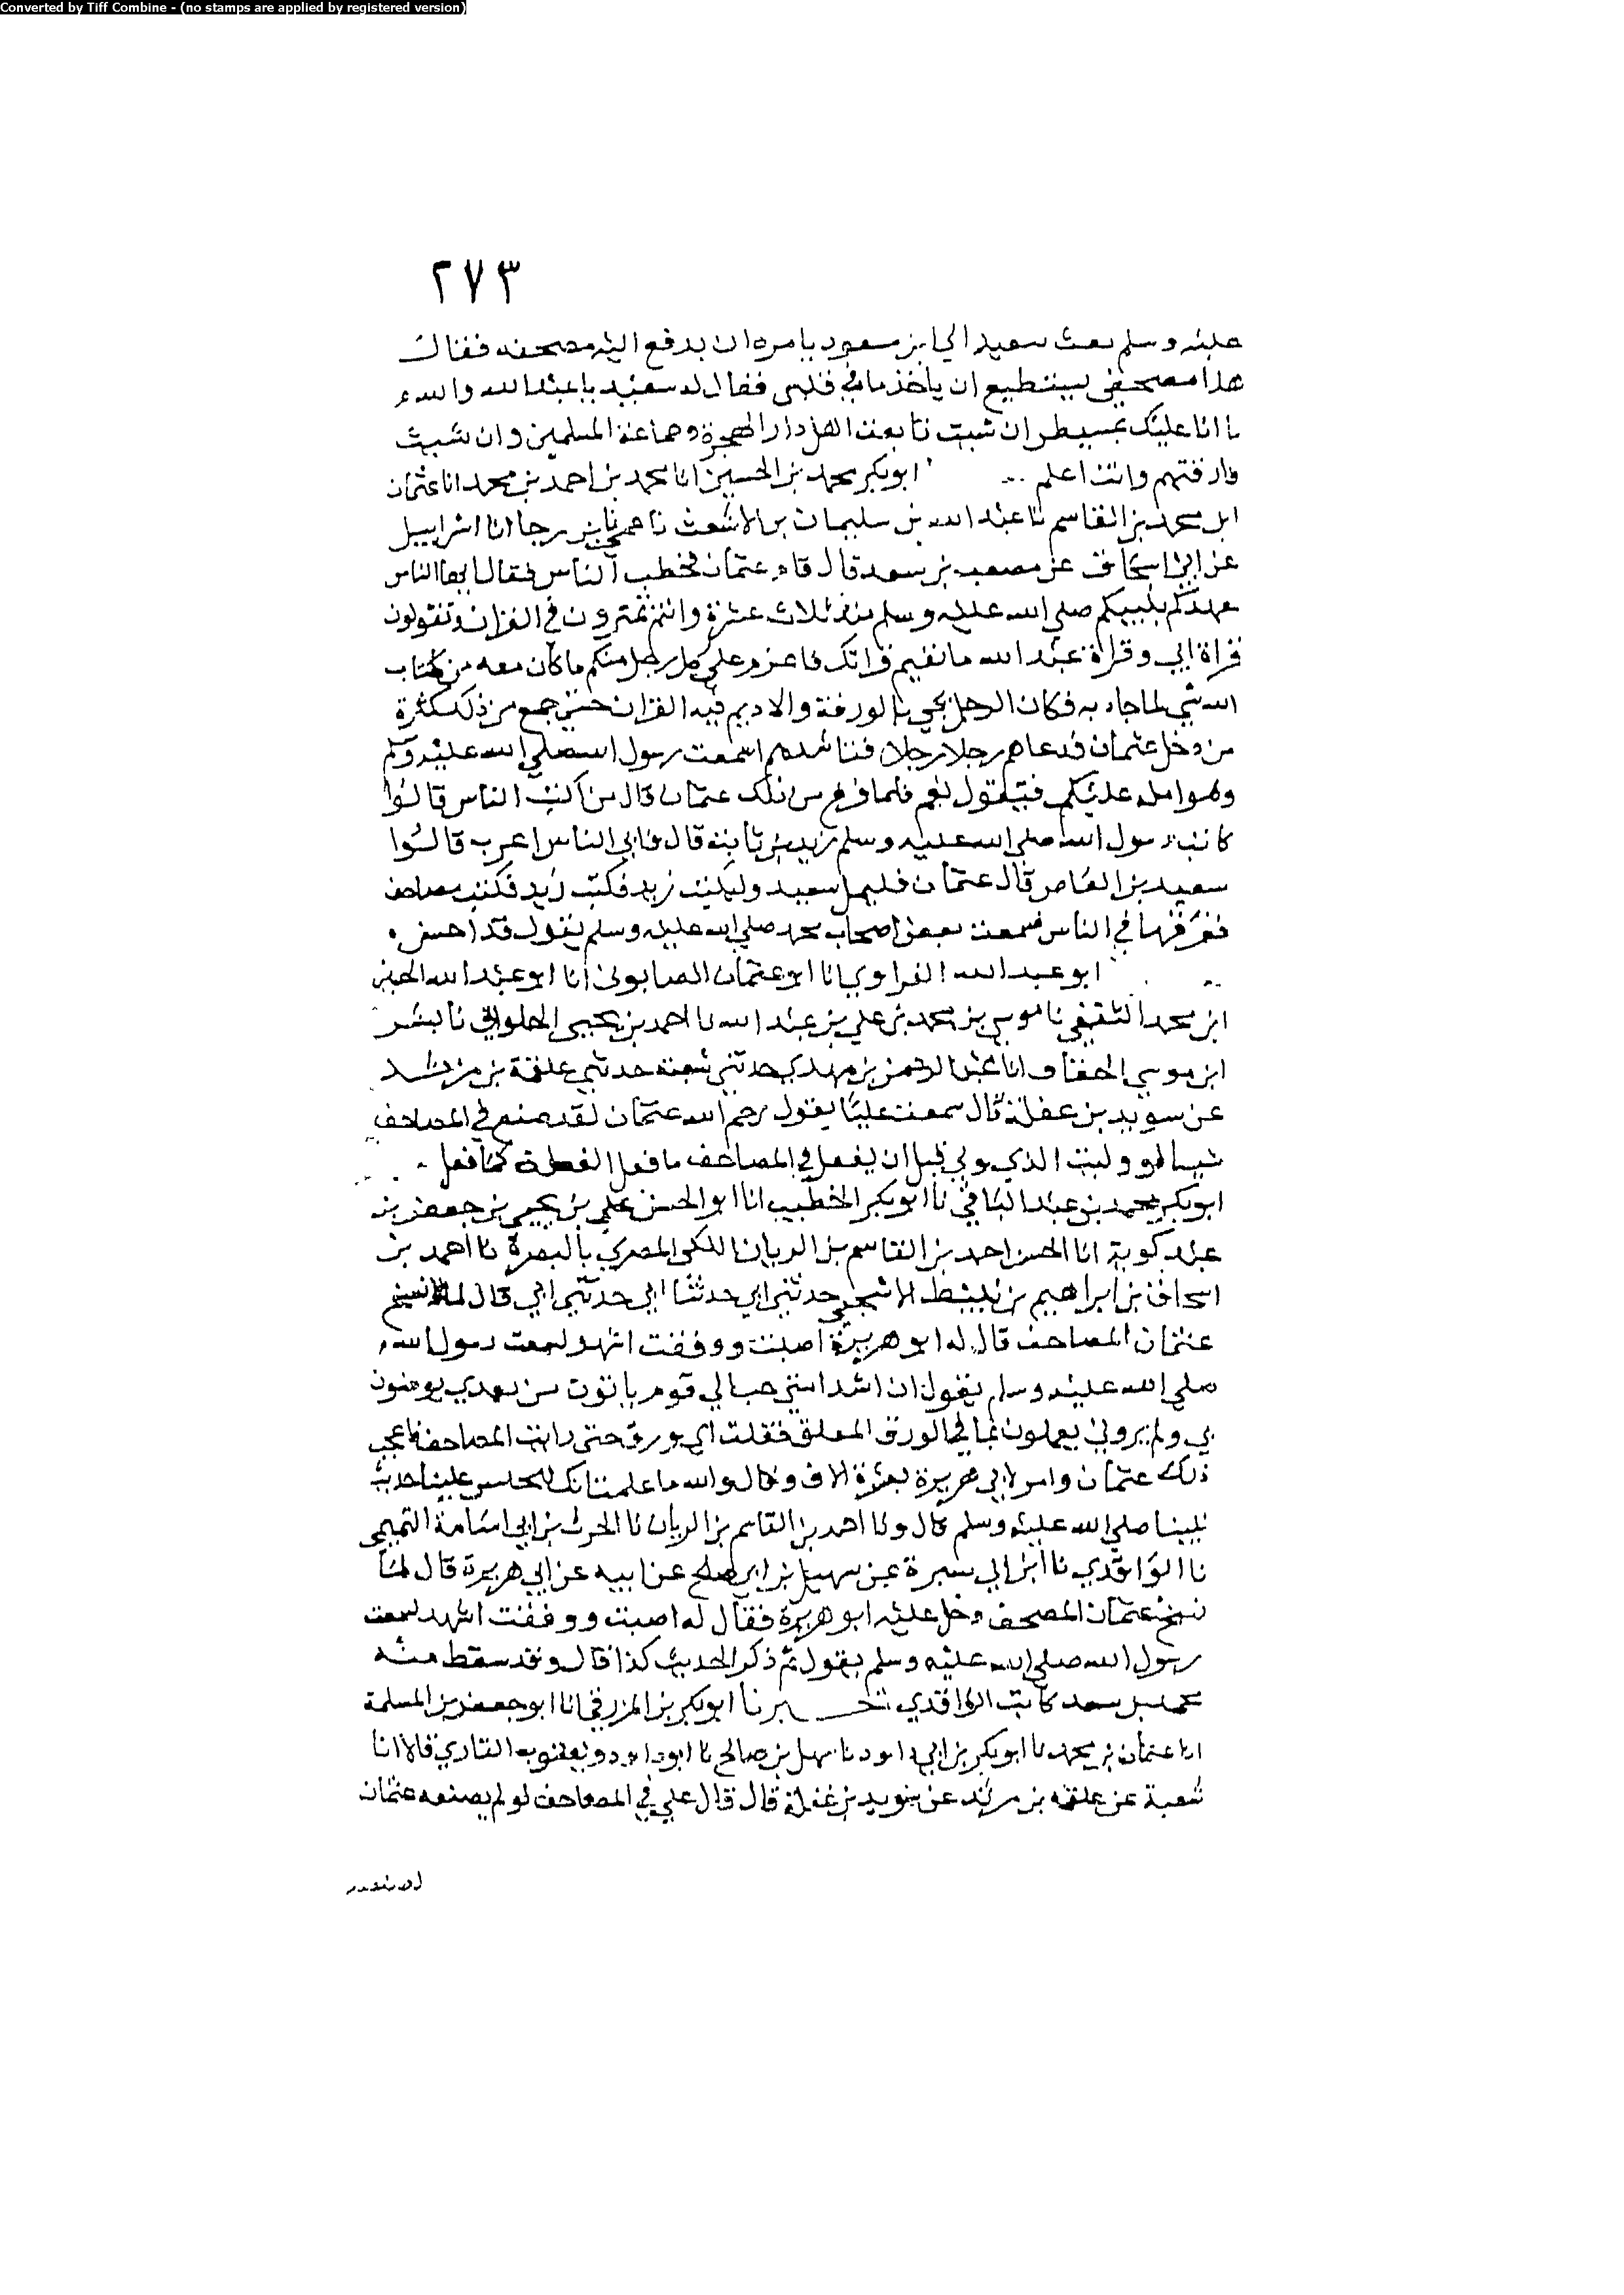 Converted by Tiff Combine - (no stamps are applied by registered version)
٢٧٣
عليه وسلم بعث سعيد الى ابن مسعود يامره ان يدفع اليه مصحفه فقال
هذا مصحفي يستطيع ان ياخذ ما في قلبي فقال له سعيد يا عبد الله والله
ما انا عليك بمسيطر ان شيت تابعت اهل دار الهجرة وجماعة المسلمين وان شيت
فارقتهم وانت اعلم ابو بكر محمد بن الحسين انا محمد بن احمد بن محمد انا عثمان
ابن محمد بن القاسم نا عبد الله بن سليمان بن الاشعث نا بن رجا انا اسراييل
عن ابي اسحاق عن مصعب بن سعد قال قام عثمان فخطب الناس فقال ايها الناس
عهدكم بنبيكم صلى الله عليه وسلم منذ ثلاث عشرة وانتم تمترون في القران وتقولون
قراة ابي وقراة عبد الله ما نقيم قراتك فاعزم على كل رجل منكم ما كان معه من كتاب
الله شي لما جا به فكان الرجل يجي بالورقة والاديم فيه القران حتى جمع من ذلك كثرة
من دخل عثمان فدعاهم رجلا رجلا فناشدهم اسمعت رسول الله صلى الله عليه وسلم
وهو امله عليكم فيقول نعم فلما فرغ من ذلك عثمان قال من اكتب الناس قالوا
كاتب رسول الله صلى الله عليه وسلم زيد بن ثابت قال فاي الناس اعرب قالوا
سعيد بن العاص قال عثمان فليمل سعيد وليكتب زيد فكتب زيد فكتب مصاحف
ففرقها في الناس فسمعت بعض اصحاب محمد صلى الله عليه وسلم يقول قد احسن
ابو عبد الله الفراوي انا ابو عثمان الصابوني انا ابو عبد الله الحسين
ابن محمد الثقفي نا موسى بن محمد بن علي بن عبد الله نا احمد بن يحيى الحلواني نا بشر
ابن موسى الخفاف انا عبد الرحمن بن مهدي حدثني شعبة حدثني علقمة بن مرثد
عن سويد بن غفلة قال سمعت عليا يقول رحم الله عثمان لقد صنع في المصاحف
شيا لو وليت الذي ولي قبل ان يفعل في المصاحف ما فعل لفعلت كما فعل
ابو بكر محمد بن عبد الباقي نا ابو بكر الخطيب انا ابو الحسن علي بن يحيى بن جعفر بن
عبد كويه انا الحسن احمد بن القاسم بن الريان اللكي المصري بالبصرة نا احمد بن
اسحاق بن ابراهيم بن نبيط الاشجعي حدثني ابي حدثنا ابي حدثني ابي قال لما نسخ
عثمان المصاحف قال له ابو هريرة اصبت ووفقت اشهد لسمعت رسول الله
صلى الله عليه وسلم يقول ان اشد امتي حبا لي قوم ياتون من بعدي يومنون
بي ولم يروني يعملون بما في الورق المعلق فقلت اي ورق حتى رايت المصاحف فاعجب
ذلك عثمان وامر لابي هريرة بعشرة الاف وقال والله ما علمت انك لتحبس علينا حديث
نبينا صلى الله عليه وسلم قال ونا احمد بن القاسم بن الريان نا الحرث بن ابي اسامة التميمي
نا الواقدي نا ابن ابي سبرة عن سهيل بن ابي صالح عن ابيه عن ابي هريرة قال لما
نسخ عثمان المصحف دخل عليه ابو هريرة فقال له اصبت ووفقت اشهد لسمعت
رسول الله صلى الله عليه وسلم يقول ثم ذكر الحديث كذا قال وقد سقط منه
محمد بن سعد كاتب الواقدي اخبرنا ابو بكر بن المزرفي انا ابو جعفر بن المسلمة
انا عثمان بن محمد نا ابو بكر بن ابي داود نا سهل بن صالح نا ابو داود ويعقوب القاري قالا انا
شعبة عن علقمة بن مرثد عن سويد بن غفلة قال قال علي في المصاحف لو لم يصنعه عثمان
لصنعته